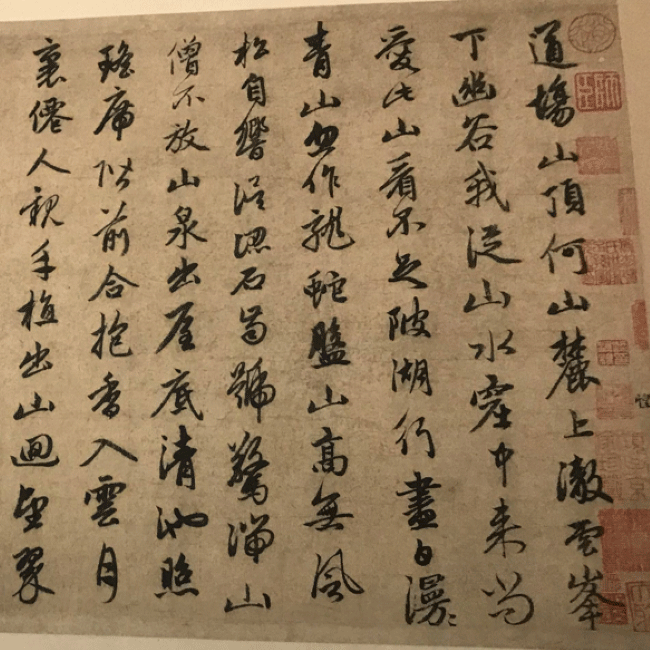 道塲山頂何山麓上澈雲峯
下幽谷我從山水窟中来尚
愛此山看不足陂湖行盡白漫〻
青山忽作龍蛇盤山高無風
松自響誤認石齒號驚湍山
僧不放山泉出屋底清池照
瑤席階前合抱香入雲月
裏僊人親手植出山迴望翠